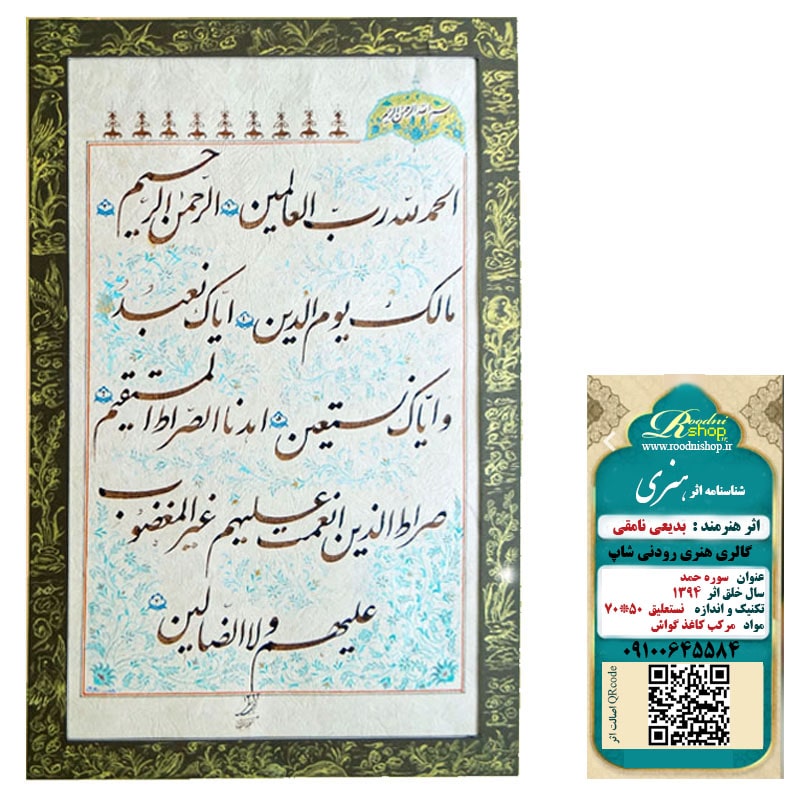 بسم الله الرحمن الرحیم
الحمد لله رب العالمین الرحمن الرحیم
مالک یوم الدین ایاک نعبد
وایاک نستعین اهدنا الصراط المستقیم
صراط الذین انعمت علیهم غیر المغضوب
علیهم ولا الضالین
Roodni
Rshop.ir
www.roodnishop.ir
شناسنامه اثر هنری
اثر هنرمند : بدیعی نامقی
گالری هنری رودنی شاپ
عنوان سوره حمد
سال خلق اثر ۱۳۹۴
تکنیک و اندازه نستعلیق ۵۰*۷۰
مواد مرکب کاغذ گواش
۰۹۱۰۰۶۴۵۵۸۴
اصالت اثر QRcode